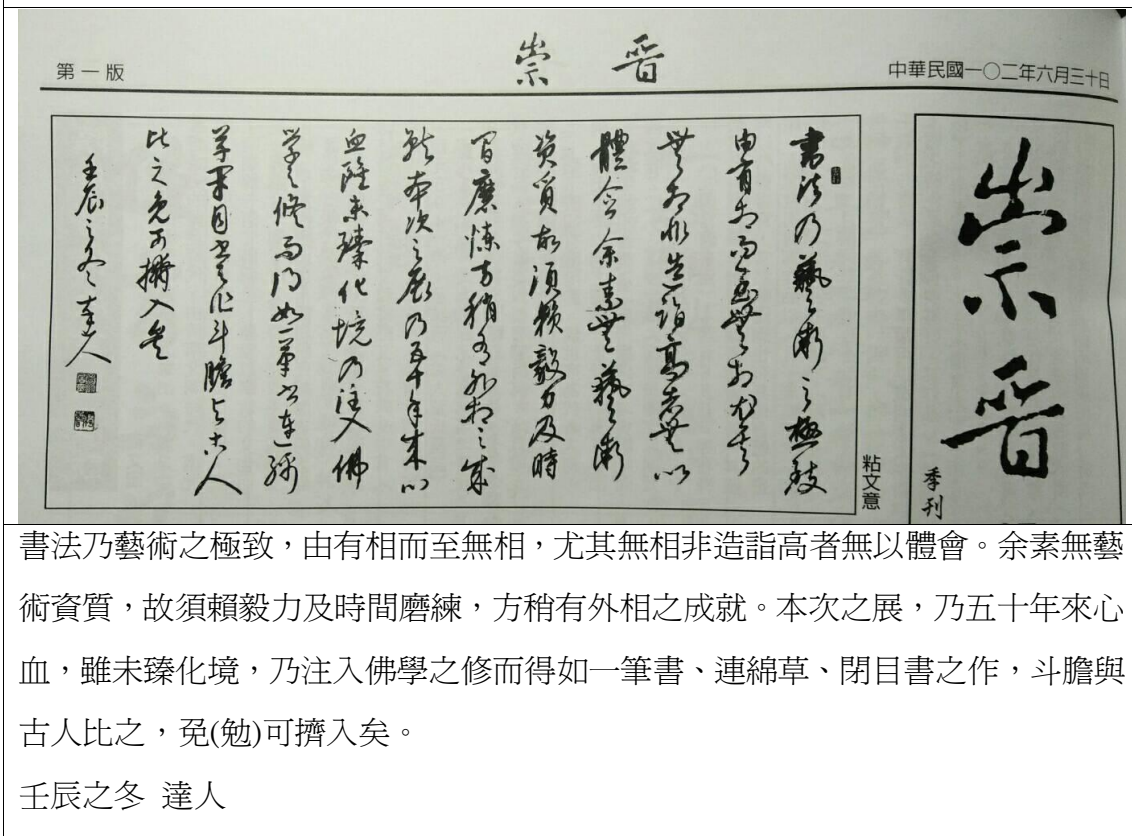 第一版
崇晉
中華民國一○二年六月三十日
崇晉
季刊
粘文意
書法乃藝術之極致
由有相而至無相尤其
無相非造詣高者無以
體會余素無藝術
資質故須賴毅力及時
間磨煉方稍有外相之成
就本次之展乃五十年來心
血雖未臻化境乃注入佛
學之修而得如一筆書連綿
草閉目書之作斗膽與古人
比之免可擠入矣
壬辰之冬達人
書法乃藝術之極致，由有相而至無相，尤其無相非造詣高者無以體會。余素無藝
術資質，故須賴毅力及時間磨練，方稍有外相之成就。本次之展，乃五十年來心
血，雖未臻化境，乃注入佛學之修而得如一筆書、連綿草、閉目書之作，斗膽與
古人比之，免(勉)可擠入矣。
壬辰之冬 達人